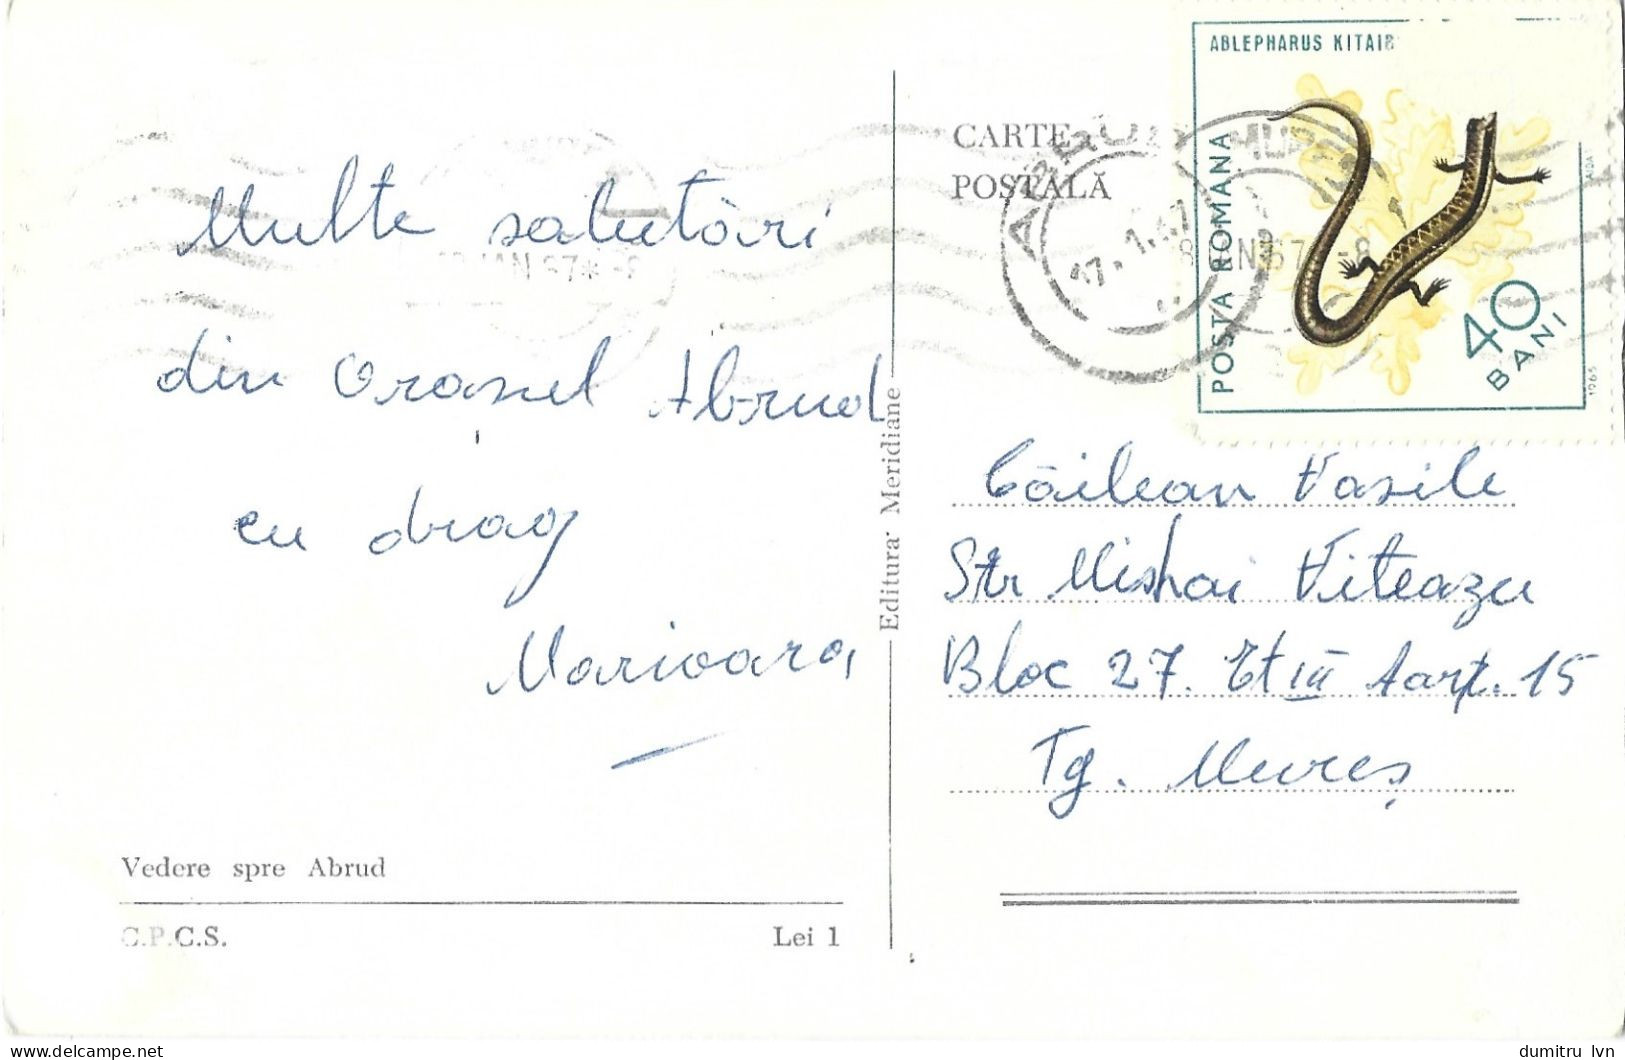 Multe salutări
din orasul Abrud
cu drag
Marioara
Vedere spre Abrud
C.P.C.S.
Lei 1
Editura Meridiane
CARTE
POSTALĂ
ABRUD
17.1.67
JAN 67 * - 8
ABLEPHARUS KITAIB
POSTA ROMANA
40
BANI
1965
Căilean Vasile
Str Mishai Viteazu
Bloc 27. Et III Aarp. 15
Tg. Mureș
dumitru_lvn
https://www.delcampe.net